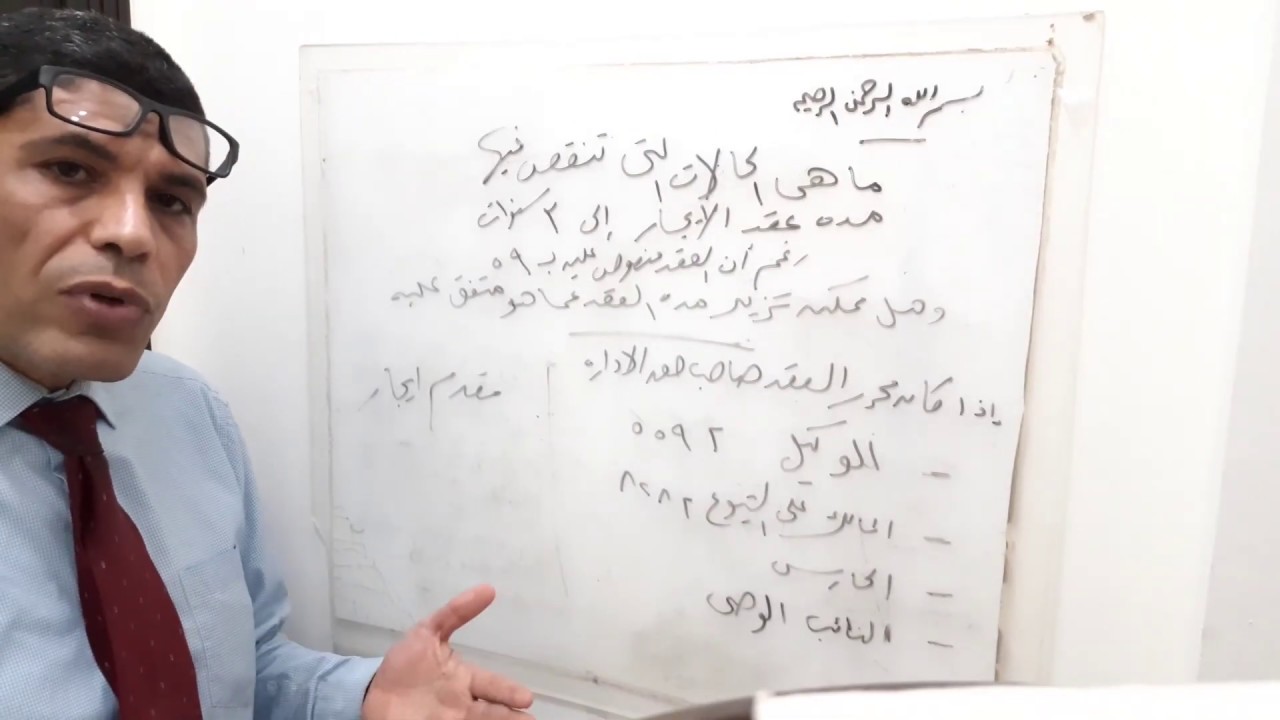 بسم الله الرحمن الرحيم
ما هى الحالات التى تنقص فيها
مده عقد الايجار إلى ٣ سنوات
رغم أن العقد منصوص عليه ب ٥٩
وهل ممكن تزيد مدة العقد عما هو متفق عليه
إذا كان محرر العقد صاحب حق الاداره
مقدم ايجار
- الموكيل ٥٥٩ م
- المالك على الشيوع م ٨٢٨
- الحارس
- النائب الوصى